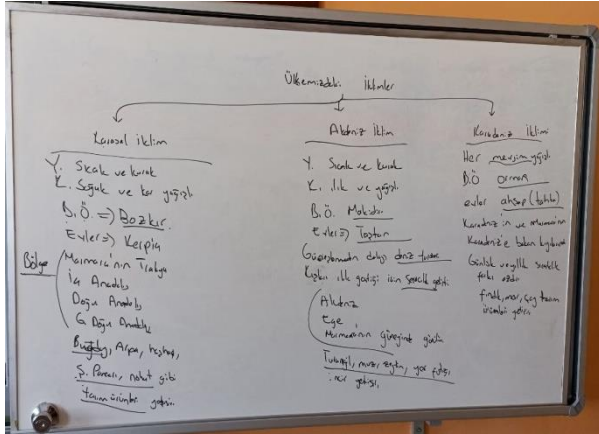 Ülkemizdeki İklimler
Karasal İklim
Y. Sıcak ve kurak
K. Soğuk ve kar yağışlı
B.Ö. => Bozkır.
Evler => Kerpiç
Bölge
Marmara'nın Trakya
İç Anadolu
Doğu Anadolu
G. Doğu Anadolu
Buğday, Arpa, haşhaş,
Ş. Pancarı, nohut gibi
tarım ürünleri yetişir.
Akdeniz İklim
Y. Sıcak ve kurak
K. ılık ve yağışlı
B.Ö. Makidir
Evler => Taştan
dolayı deniz turizmi
Kışları ılık geçtiği için seracılık gelişti
Akdeniz
Ege
Marmara'nın güneyinde görülür
Turunçgil, muz, zeytin,
incir yetişir.
Karadeniz İklimi
Her mevsim yağışlı
B.Ö orman
evler ahşap (tahta)
Karadeniz'in ve Marmara'nın
Karadeniz'e bakan kıyılarında
Günlük ve yıllık sıcaklık
farkı azdır.
fındık, mısır, çay tarım
ürünleri yetişir